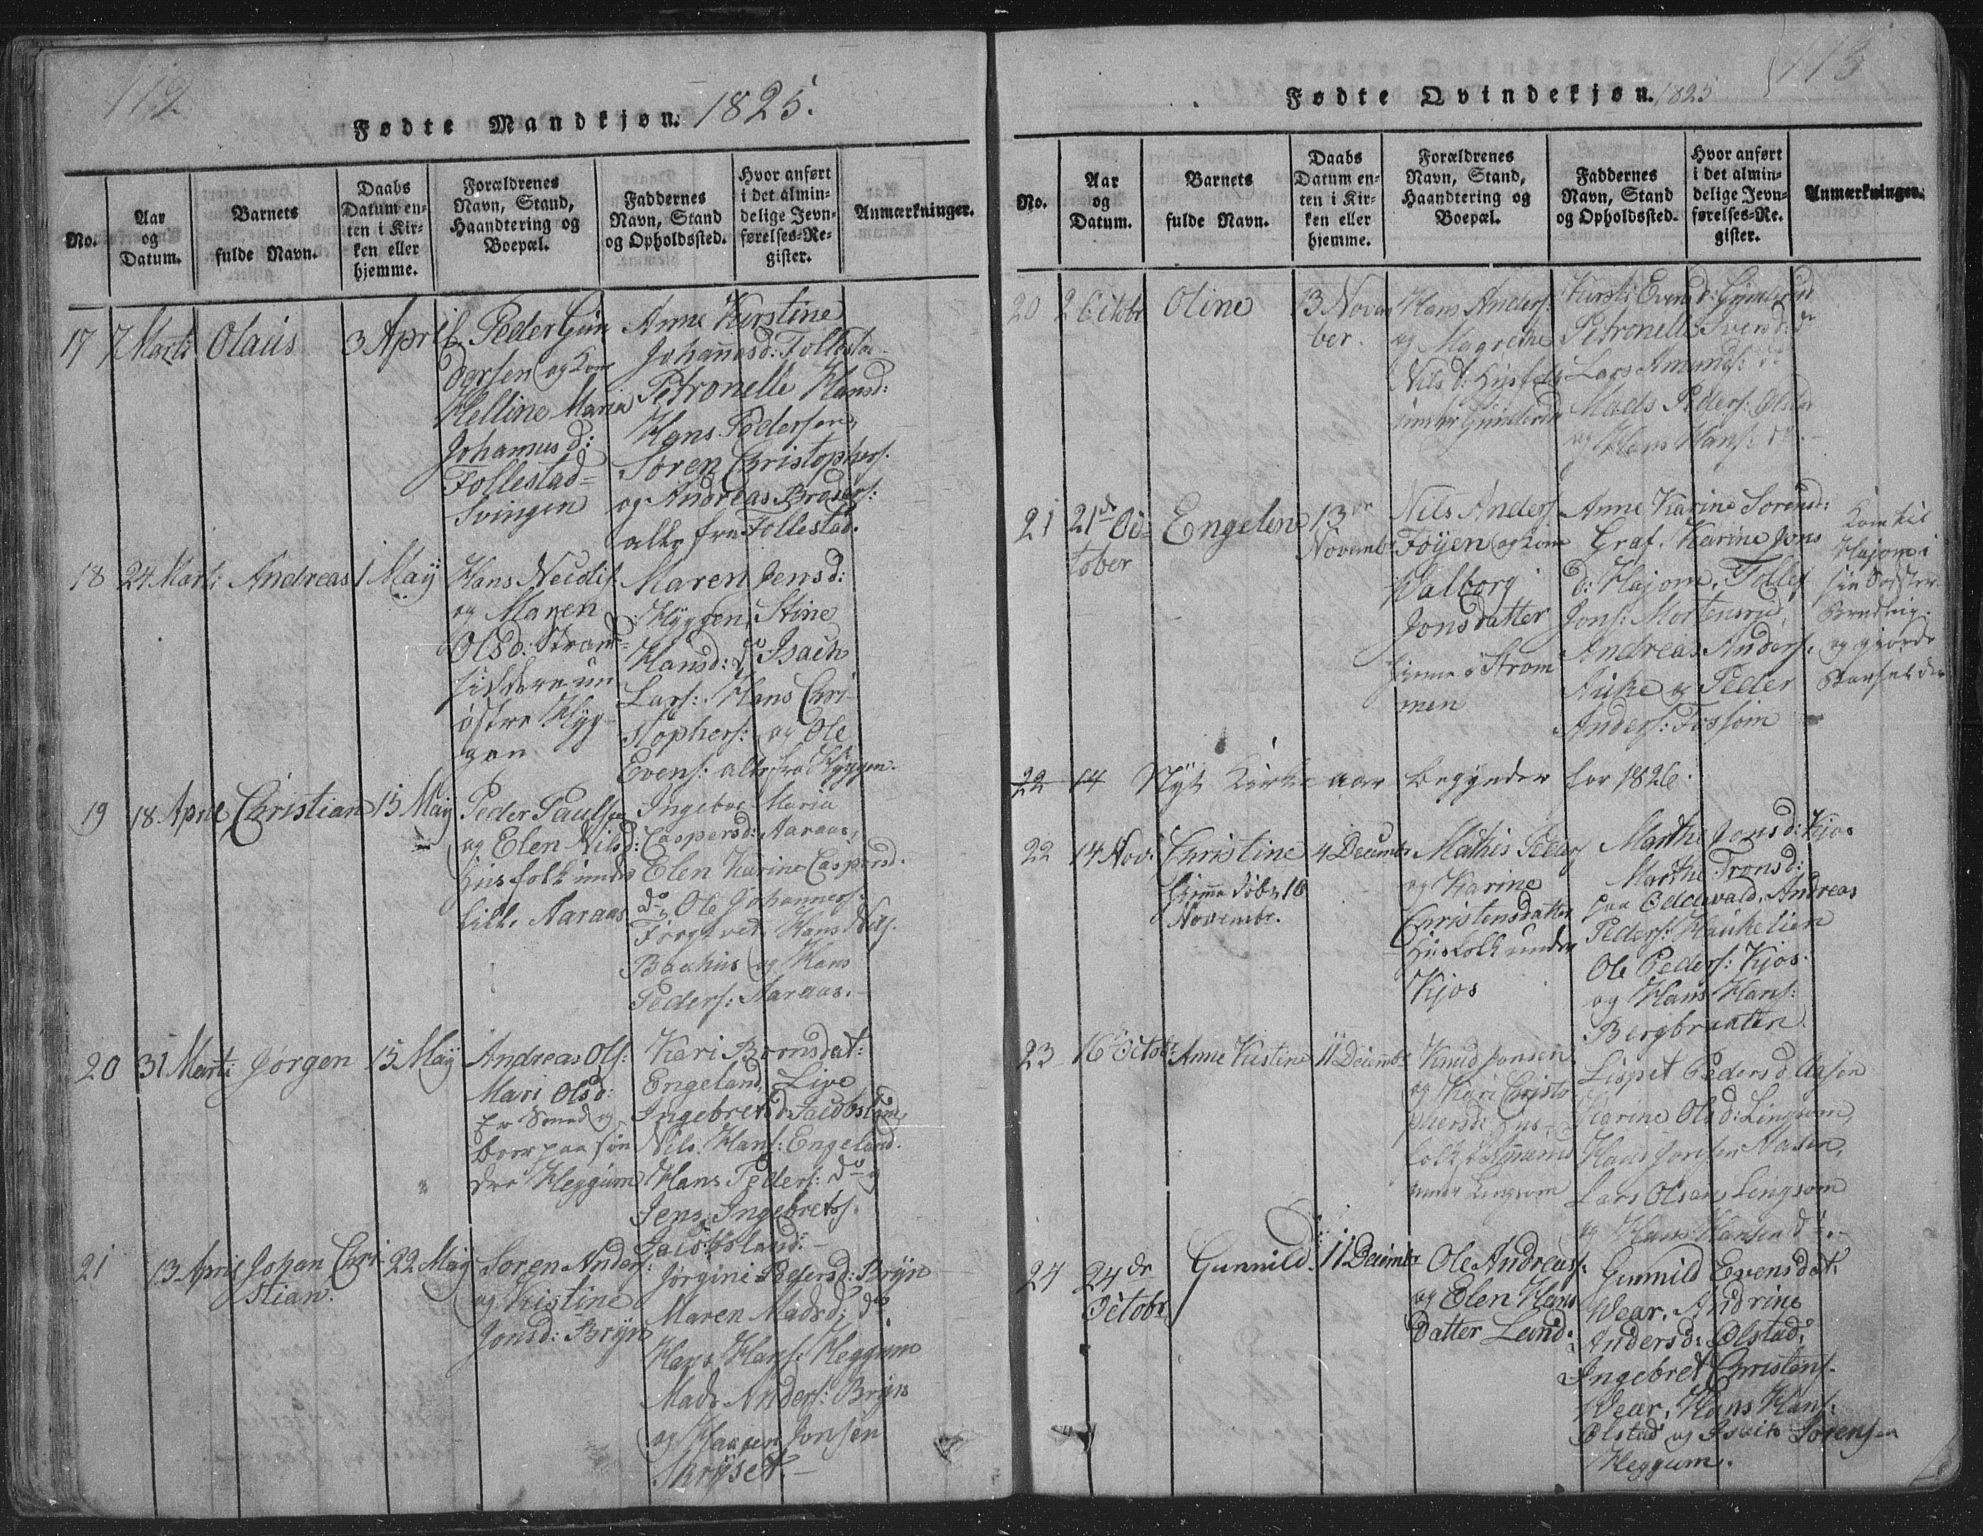 112
Fødte Mandkjøn. 1825.
No.
Aar
og
Datum.
Barnets
fulde Navn.
Daabs
Datum en-
ten i Kir-
ken eller
hjemme.
Forældrenes
Navn, Stand,
Haandtering og
Boepæl.
Faddernes
Navn, Stand
og Opholdssted.
Hvor anført
i det almin-
delige Jevn-
førelses-Re-
gister.
Anmærkninger.
17 7 Marti Olaus 3 April
Peder Gun
og Kone
Helline Maria
Johannus d:
Follestad=
Svingen
Anne Kirstine
Johannsd: Follesta
Petronelle Hansd:
Hans Pedersen,
Søren Christophers:
og Andreas Braders:
alle fra Follestad.
18 24 Marti Andreas 1 May
Hans
og Maren
Olsd: Strand=
østre Hyg-
gen
Maren Jensd:
Hyggen, Stine
Hansd: do Isach
Lars: Hans Chri-
stophers: og Ole
Evens: alle fra Hyggen.
19 18 April Christian 15 May
Peder Paulsen
og Elen Nilsd:
Huusfolk under
Lille Aaraas
Ingebor Maria
Caspersd: Aaraas,
Elen Karine Caspersd.
do, Ole Johannes:
Hans Nils.
Baahus og Hans
Peders: Aaraas.
20 31 Marti Jørgen 15 May
Andreas Ols:
Mari Olsd:
Er Smed og
boer paa søn
dre Heggum
Kari Børnsdat:
Engeland, Live
Ingebretsd Jacobsland,
Nils Hans: Engeland.
Hans Peders: do og
Jens Ingebrets.
Jacobsland:
21 13 April Johan Chri-
stian.
22 May
Søren Anders:
og Kistine
Jonsd: Bryn
Jørgine Pedersd: Bryn
Maren Madsd: do
Hans Hans: Heggum
Mads Anders: Bryn
og Haagen Jonsen
Skryset.
113
Fødte Qvindekjøn. 1825
No.
Aar
og
Datum.
Barnets
fulde Navn.
Daabs
Datum en-
ten i Kir-
ken eller
hjemme.
Forældrenes
Navn, Stand,
Haandtering og
Boepæl.
Faddernes
Navn, Stand
og Opholdssted.
Hvor anført
i det almin-
delige Jevn-
førelses-Re-
gister.
Anmærkninger.
20 2 Octobr Oline 13 Novem
ber.
Hans Anders:
og Magrethe
Nilsd: Husfolk
under
Kirsti Evensd:
Petronelle Svensd: do
Lars Amunds: do
Mads Peders: Olsta
og Hans Hans: do.
21 21de Oc-
tober
Engelen 13de
Novembr
Nils Anders
Føyen og Kone
Valborg
Jonsdatter
hjemme i Strøm
men
Anne Karine Sørensd:
Graf, Karine Jons
d: Hajom, Tollef
Jons: Mortensrud,
Andreas Anders.
og Peder
Anders: Fossom
Kom til
Hajom i
sin Søster
og giorde
Barsel der
22 14 Nyt Kirke aar begynder for 1826.
22 14 Nov: Christine
hjemme døbt 16
Novembr.
4 Decembr
Mathis Peders
og Karine
Christensdatter
Husfolk under
Kjos
Marthe Jonsd: Kjos
Marthe Tronsd:
paa Oddevald, Andreas
Peders: Haukelien
Ole Peders: Kjos.
og Hans Hans:
Bergbraaten
23 16 Octob: Anne Kistine 11 Decembr
Knud Jonsen
og Kari Christo
phersd: Hus-
folk
under Lingsom
Lispet Pedersd Aasen
Karine Olsd: Lingsom,
Hans Jonsen Aasen,
Lars Olsen Lingsom
og Hans Hansen do.
24 24de
Octobr
Gunnild 11 Decembr
Ole Andreas:
og Elen Hans
datter Lund.
Gunnild Evensdat:
Wear, Andrine
Andersd: Ølstad,
Ingebret Christens.
Wear, Hans Hans:
Ølstad og Isach Sørensen
Heggum.